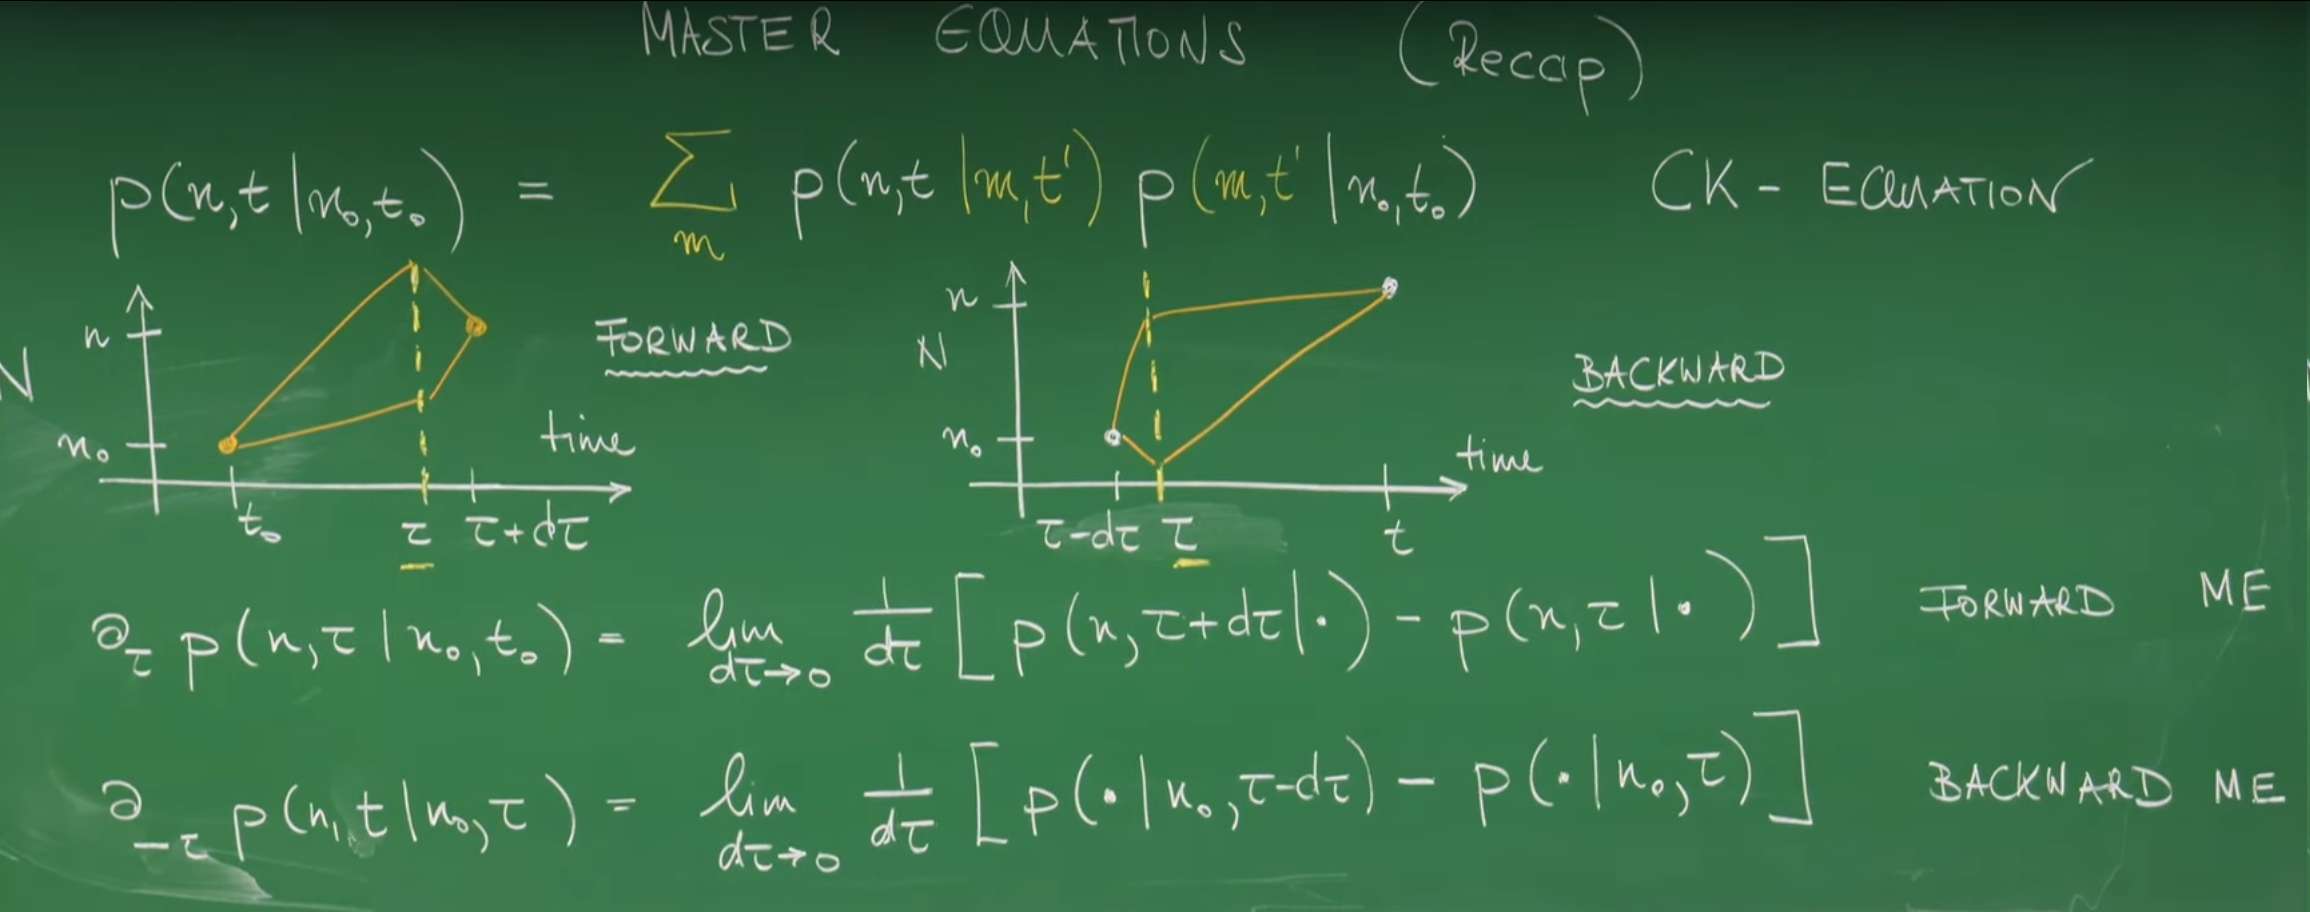 MASTER EQUATIONS (Recap)
p(n,t|n₀,t₀) = ∑ₘ p(n,t|m,t') p(m,t'|n₀,t₀) CK-EQUATION
n
N
n₀
FORWARD
time
t₀ τ τ+dτ
n
N
n₀
BACKWARD
time
τ-dτ τ t
∂_τ p(n,τ|n₀,t₀) = lim_{dτ→0} 1/dτ [p(n,τ+dτ|·) - p(n,τ|·)] FORWARD ME
∂_{-τ} p(n,t|n₀,τ) = lim_{dτ→0} 1/dτ [p(·|n₀,τ-dτ) - p(·|n₀,τ)] BACKWARD ME